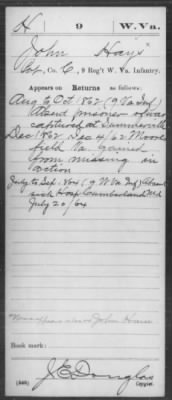 H 9 W. Va.
John Hays
Pvt., Co. C, 9 Reg't W. Va. Infantry.
Appears on Returns as follows:
Aug & Oct 1862 (9 Va Inf)
Absent prisoner of war
captured at Summerville
Dec 1862 Dec 4/62 Moore
field Va. gained
from missing in
action
July to Sep. 1864 (9 W Va Inf) Absent
sick Hosp Cumberland Md
July 20/64
Name appears also as John Haus
Book mark:
J. E. Douglas
(546) Copyist.